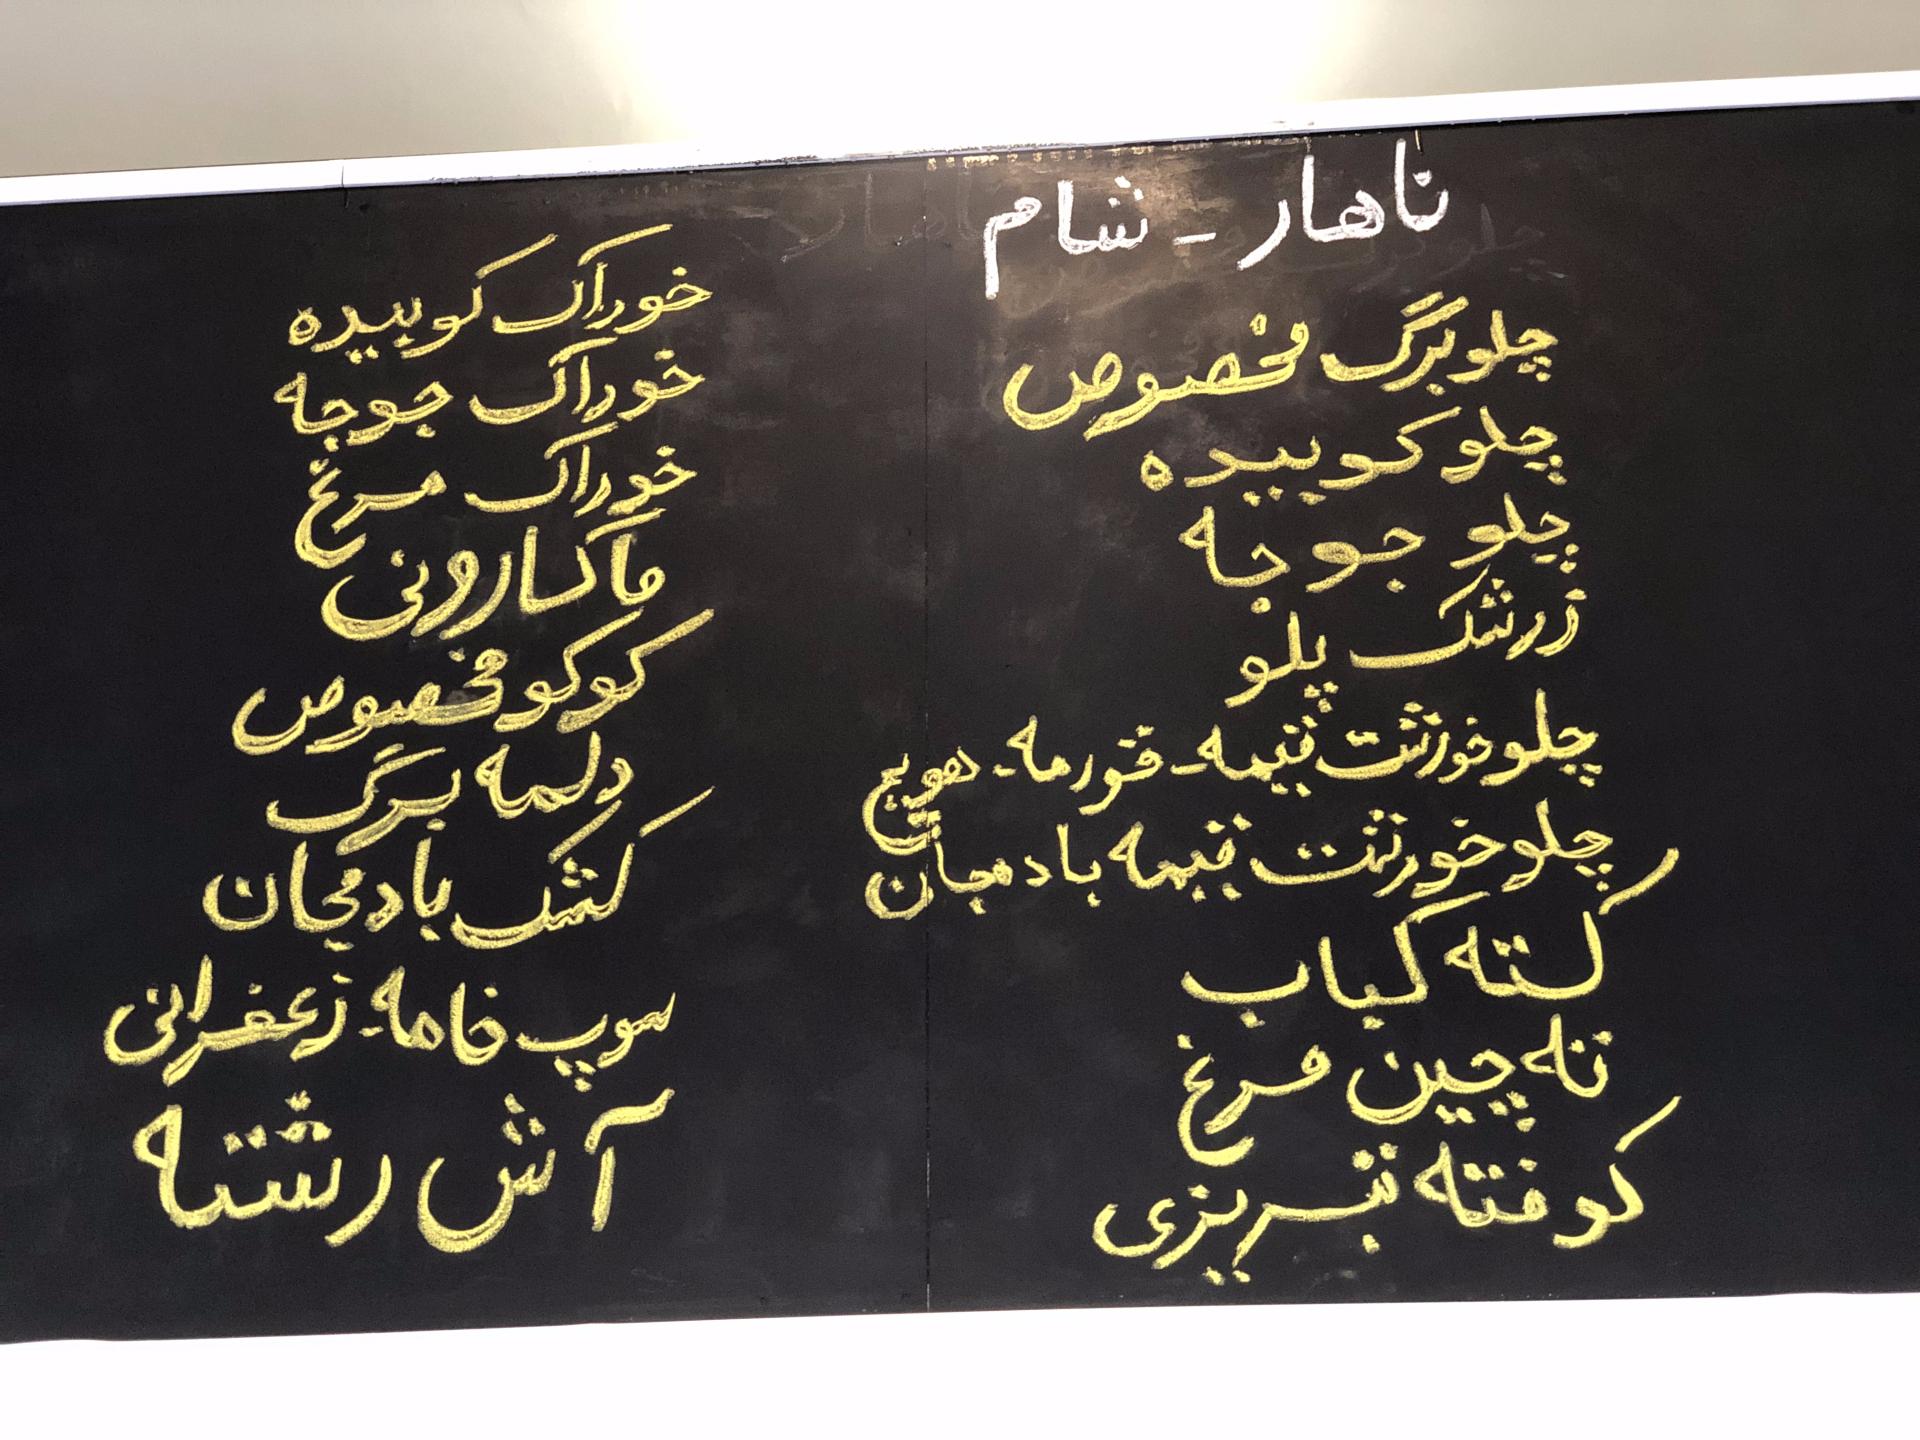 ناهار - شام
چلو برگ مخصوص
چلو کوبیده
چلو جوجه
زرشک پلو
چلو خورشت قیمه - قورمه - هویج
چلو خورشت قیمه بادمجان
کته کباب
ته چین مرغ
کوفته تبریزی
خوراک کوبیده
خوراک جوجه
خوراک مرغ
ماکارونی
کوکو مخصوص
دلمه برگ
کشک بادمجان
سوپ خامه - زعفرانی
آش رشته